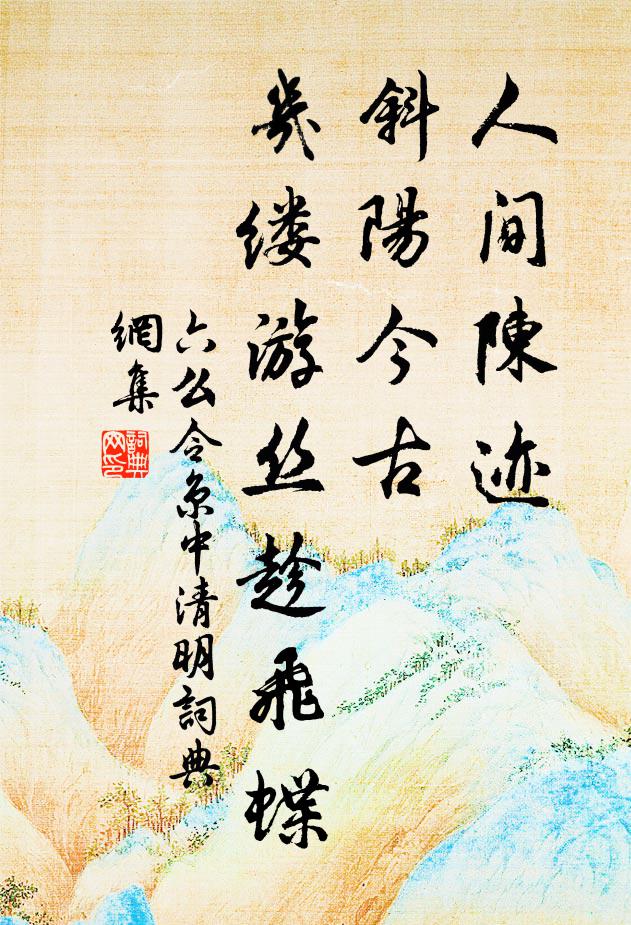 人间陳迹
斜陽今古
幾缕游丝趁飛蝶
六幺令京中清明詞典
網集
詞典
网印